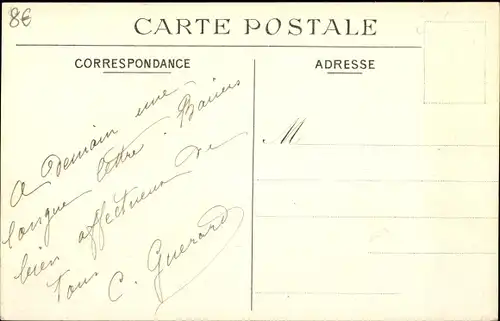 8€
CARTE POSTALE
CORRESPONDANCE
ADRESSE
A demain une
longue lettre. Baisers
bien affectueux de
tous
C. Guerard
M